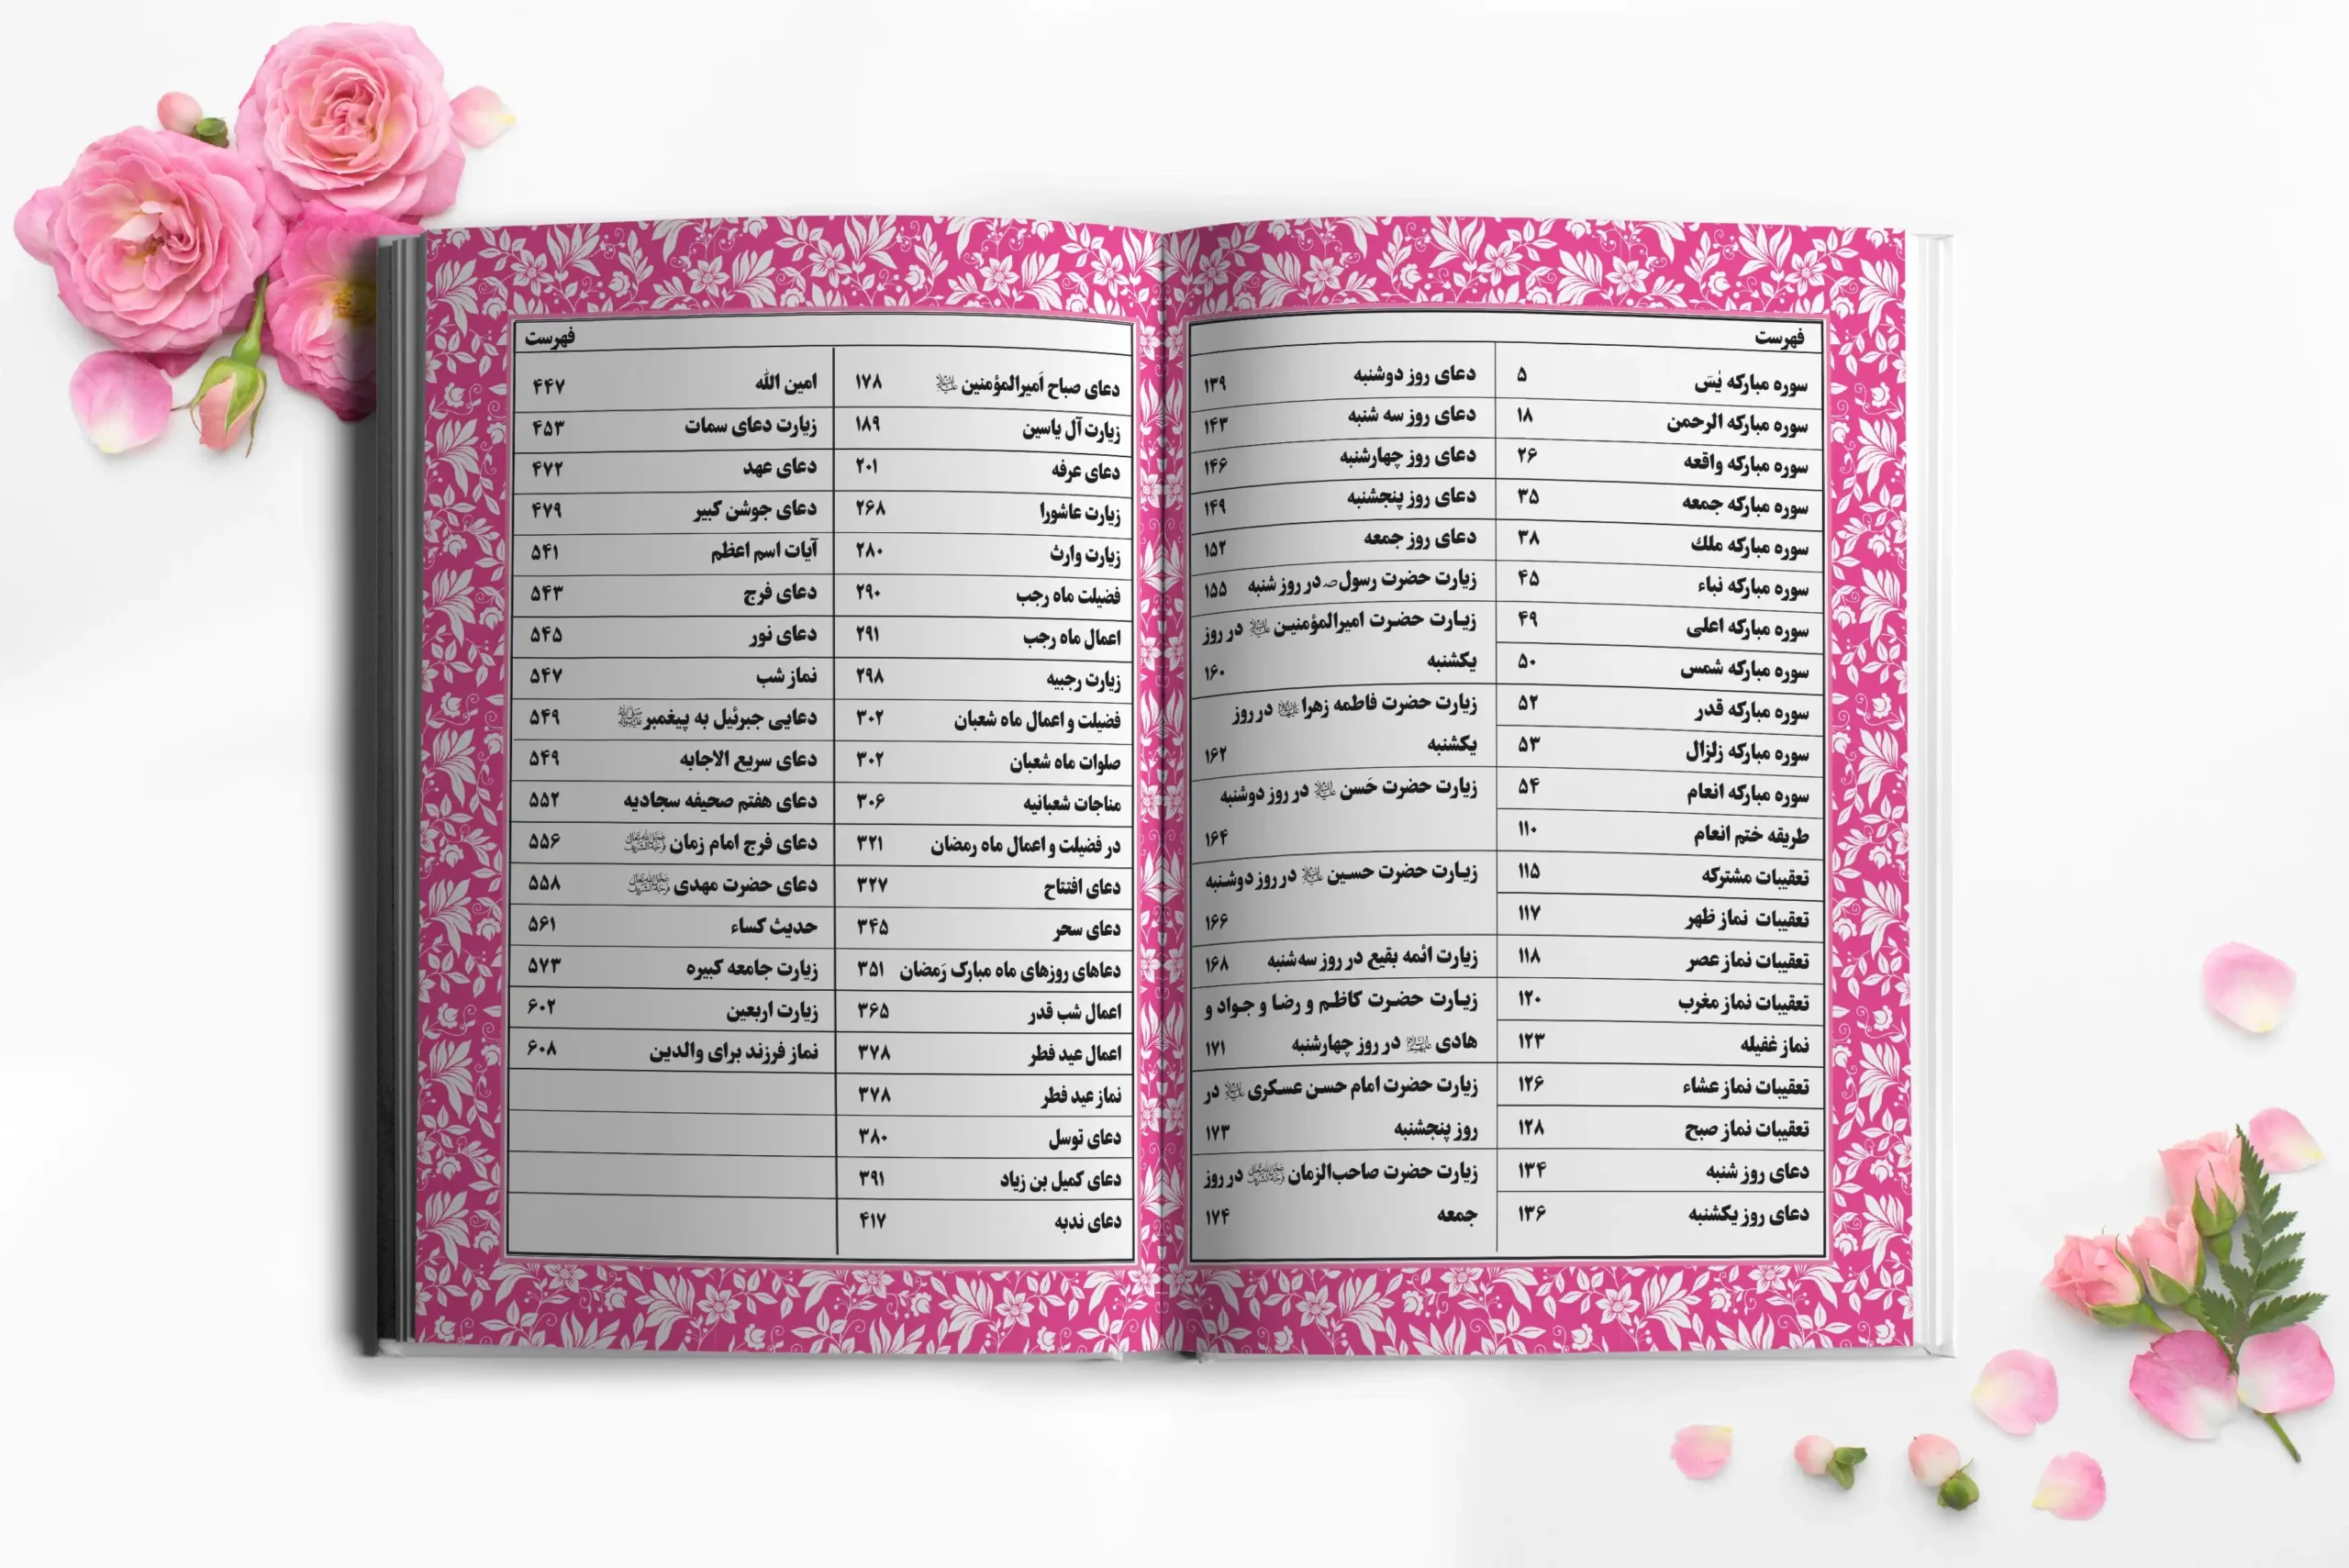 فهرست
سوره مبارکه یٰسٓ ۵
سوره مبارکه الرحمن ۱۸
سوره مبارکه واقعه ۲۶
سوره مبارکه جمعه ۳۵
سوره مبارکه ملك ۳۸
سوره مبارکه نباء ۴۵
سوره مبارکه اعلی ۴۹
سوره مبارکه شمس ۵۰
سوره مبارکه قدر ۵۲
سوره مبارکه زلزال ۵۳
سوره مبارکه انعام ۵۴
طریقه ختم انعام ۱۱۰
تعقیبات مشترکه ۱۱۵
تعقیبات نماز ظهر ۱۱۷
تعقیبات نماز عصر ۱۱۸
تعقیبات نماز مغرب ۱۲۰
نماز غفیله ۱۲۳
تعقیبات نماز عشاء ۱۲۶
تعقیبات نماز صبح ۱۲۸
دعای روز شنبه ۱۳۴
دعای روز یکشنبه ۱۳۶
دعای روز دوشنبه ۱۳۹
دعای روز سه شنبه ۱۴۳
دعای روز چهارشنبه ۱۴۶
دعای روز پنجشنبه ۱۴۹
دعای روز جمعه ۱۵۲
زیارت حضرت رسول ص در روز شنبه ۱۵۵
زیارت حضرت امیرالمؤمنین علیه‌السلام در روز
یکشنبه ۱۶۰
زیارت حضرت فاطمه زهرا علیهاالسلام در روز
یکشنبه ۱۶۲
زیارت حضرت حَسن علیه‌السلام در روز دوشنبه
۱۶۴
زیارت حضرت حسین علیه‌السلام در روز دوشنبه
۱۶۶
زیارت ائمه بقیع در روز سه‌شنبه ۱۶۸
زیارت حضرت کاظم و رضا و جواد و
هادی علیهم‌السلام در روز چهارشنبه ۱۷۱
زیارت حضرت امام حسن عسکری علیه‌السلام در
روز پنجشنبه ۱۷۳
زیارت حضرت صاحب‌الزمان عجل‌الله‌تعالی‌فرجه‌الشریف در روز
جمعه ۱۷۴
فهرست
دعای صباح اَمیرالمؤمنین علیه‌السلام ۱۷۸
زیارت آل یاسین ۱۸۹
دعای عرفه ۲۰۱
زیارت عاشورا ۲۶۸
زیارت وارث ۲۸۰
فضیلت ماه رجب ۲۹۰
اعمال ماه رجب ۲۹۱
زیارت رجبیه ۲۹۸
فضیلت و اعمال ماه شعبان ۳۰۲
صلوات ماه شعبان ۳۰۲
مناجات شعبانیه ۳۰۶
در فضیلت و اعمال ماه رمضان ۳۲۱
دعای افتتاح ۳۲۷
دعای سحر ۳۴۵
دعاهای روزهای ماه مبارک رَمضان ۳۵۱
اعمال شب قدر ۳۶۵
اعمال عید فطر ۳۷۸
نماز عید فطر ۳۷۸
دعای توسل ۳۸۰
دعای کمیل بن زیاد ۳۹۱
دعای ندبه ۴۱۷
امین الله ۴۴۷
زیارت دعای سمات ۴۵۳
دعای عهد ۴۷۲
دعای جوشن کبیر ۴۷۹
آیات اسم اعظم ۵۴۱
دعای فرج ۵۴۳
دعای نور ۵۴۵
نماز شب ۵۴۷
دعایی جبرئیل به پیغمبر ﷺ ۵۴۹
دعای سریع الاجابه ۵۴۹
دعای هفتم صحیفه سجادیه ۵۵۲
دعای فرج امام زمان عجل‌الله‌تعالی‌فرجه‌الشریف ۵۵۶
دعای حضرت مهدی عجل‌الله‌تعالی‌فرجه‌الشریف ۵۵۸
حدیث کساء ۵۶۱
زیارت جامعه کبیره ۵۷۳
زیارت اربعین ۶۰۲
نماز فرزند برای والدین ۶۰۸